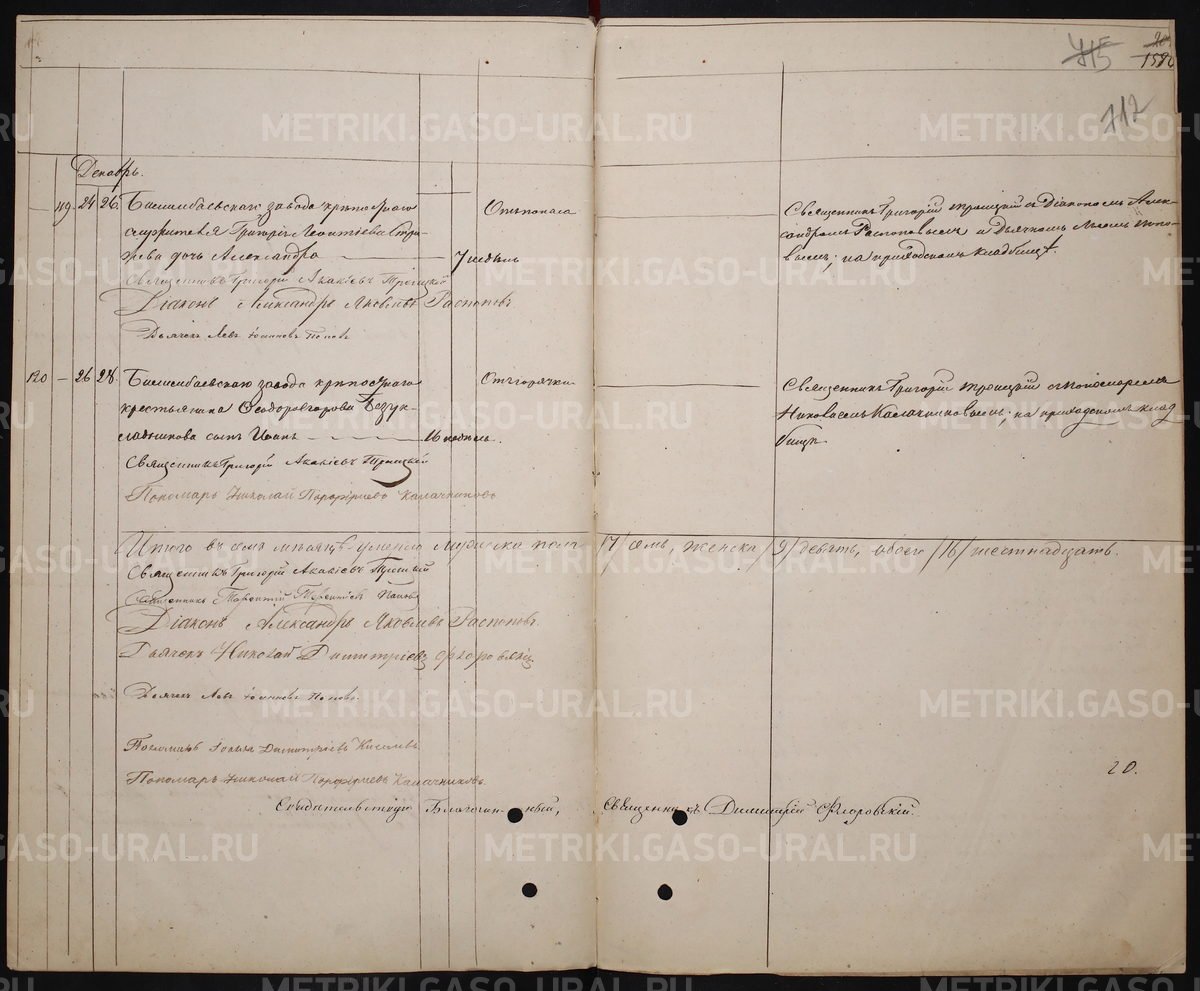 415
1580
712
Декабрь.
119. 24 26. Билимбаевскаго завода крѣпостнаго
служителя Григорія Леонтіева
дочь Александра — 7 недѣль
Отъ поноса
Священникъ Григорій Троицкій съ Діакономъ Алек-
сандромъ Распоповымъ и Дьячкомъ Львомъ Попо-
вымъ, на приходскомъ кладбищѣ.
Священникъ Григорій Акакіевъ Троицкій
Діаконъ Александръ Яковлевъ Распоповъ.
Дьячекъ Левъ Іоанновъ Поповъ
120 — 26 28. Билимбаевскаго завода крѣпостнаго
крестьянина Ѳеодора Егорова Безук-
ладникова сынъ Иванъ — 16 недѣль.
Отъ горячки
Священникъ Григорій Троицкій съ пономаремъ
Николаемъ Калачниковымъ, на приходскомъ клад
бищѣ.
Священникъ Григорій Акакіевъ Троицкій
Пономарь Николай Порфиріевъ Калачниковъ
Итого въ семъ мѣсяцѣ умерло мужеска пола /7/ семь, женска /9/ девять, обоего /16/ шестнадцать.
Священникъ Григорій Акакіевъ Троицкій
Священникъ Терентій Поповъ
Діаконъ Александръ Яковлевъ Распоповъ.
Дьячекъ Николай Димитріевъ Флоровскій
Дьячекъ Левъ Іоанновъ Поповъ.
Пономарь Димитріевъ Киселевъ
Пономарь Николай Порфиріевъ Калачниковъ.
20.
Свидѣтельствовалъ Благочинный, Священникъ Димитрій Флоровскій.
METRIKI.GASO-URAL.RU